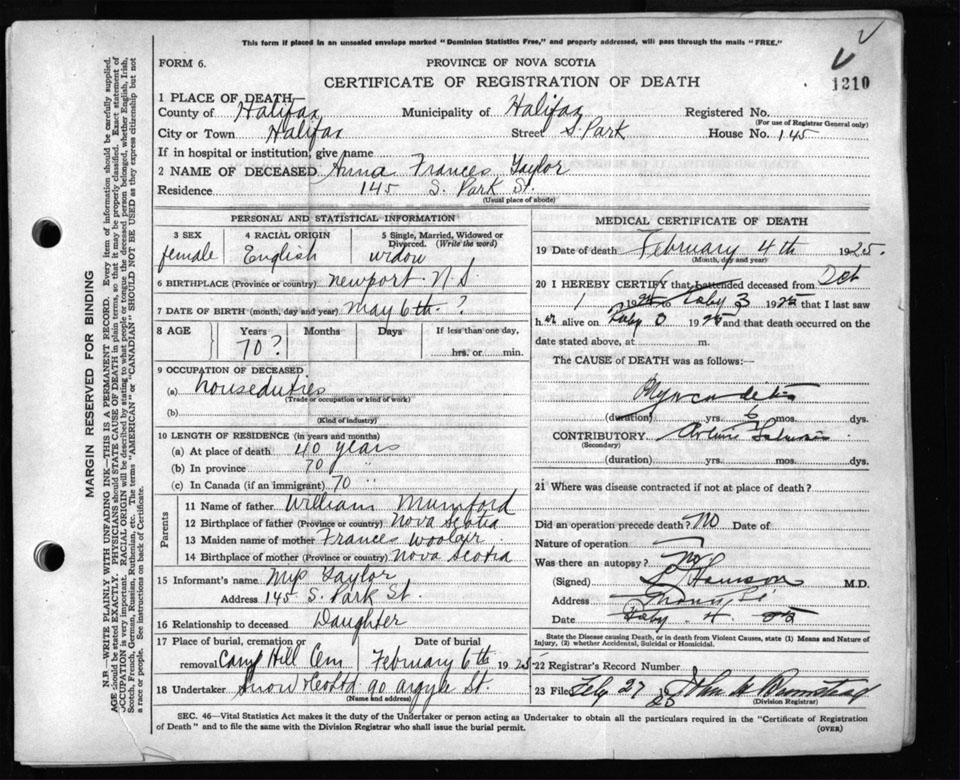 This form if placed in an unsealed envelope marked "Dominion Statistics Free," and properly addressed, will pass through the mails "FREE."
FORM 6.
PROVINCE OF NOVA SCOTIA
CERTIFICATE OF REGISTRATION OF DEATH
1210
1 PLACE OF DEATH
County of Halifax Municipality of Halifax Registered No.
(For use of Registrar General only)
City or Town Halifax Street S. Park House No. 145
If in hospital or institution, give name
2 NAME OF DECEASED Anna Frances Taylor
Residence 145 S. Park St.
(Usual place of abode)
PERSONAL AND STATISTICAL INFORMATION
3 SEX female
4 RACIAL ORIGIN English
5 Single, Married, Widowed or Divorced. (Write the word) widow
6 BIRTHPLACE (Province or country) Newport N.S
7 DATE OF BIRTH (month, day and year) May 6th ?
8 AGE Years Months Days If less than one day,
70? hrs. or min.
9 OCCUPATION OF DECEASED
(a) houseduties
(Trade or occupation or kind of work)
(b)
(Kind of industry)
10 LENGTH OF RESIDENCE (in years and months)
(a) At place of death 40 years
(b) In province 70 "
(c) In Canada (if an immigrant) 70 "
Parents
11 Name of father William Mumford
12 Birthplace of father (Province or country) Nova Scotia
13 Maiden name of mother Frances
14 Birthplace of mother (Province or country) Nova Scotia
15 Informant's name Taylor
Address 145 S. Park St.
16 Relationship to deceased Daughter
17 Place of burial, cremation or removal Camp Hill Cem
Date of burial February 6th 1925
18 Undertaker Snow & Co Ltd 90 Argyle St.
(Name and address)
MEDICAL CERTIFICATE OF DEATH
19 Date of death February 4th 1925.
(Month, day and year)
20 I HEREBY CERTIFY that I attended deceased from Oct
1924 to Feby 3 1925 that I last saw
her alive on Feby 3 1925 and that death occurred on the
date stated above, at m.
The CAUSE of DEATH was as follows:—
Myocarditis
(duration) yrs. 6 mos. dys.
CONTRIBUTORY
(Secondary)
(duration) yrs. mos. dys.
21 Where was disease contracted if not at place of death?
Did an operation precede death? No Date of
Nature of operation
Was there an autopsy? No
(Signed) M.D.
Address
Date Feby. 4. 25
State the Disease causing Death, or in death from Violent Causes, state (1) Means and Nature of Injury, (2) whether Accidental, Suicidal or Homicidal.
22 Registrar's Record Number
23 Filed Feb 27 25 John
(Division Registrar)
SEC. 46—Vital Statistics Act makes it the duty of the Undertaker or person acting as Undertaker to obtain all the particulars required in the "Certificate of Registration
of Death" and to file the same with the Division Registrar who shall issue the burial permit.
(OVER)
MARGIN RESERVED FOR BINDING
N.B—WRITE PLAINLY WITH UNFADING INK—THIS IS A PERMANENT RECORD. Every item of information should be carefully supplied.
AGE should be stated EXACTLY. PHYSICIANS should STATE CAUSE OF DEATH in plain terms, so that it may be properly classified. Exact statement of
OCCUPATION is very important. RACIAL ORIGIN will be described by stating to what people or tongue the deceased person belonged, whether English, Irish,
Scotch, French, German, Russian, Ruthenian, etc. The terms "AMERICAN" or "CANADIAN" SHOULD NOT BE USED as they express citizenship but not
a race or people. See instructions on back of Certificate.